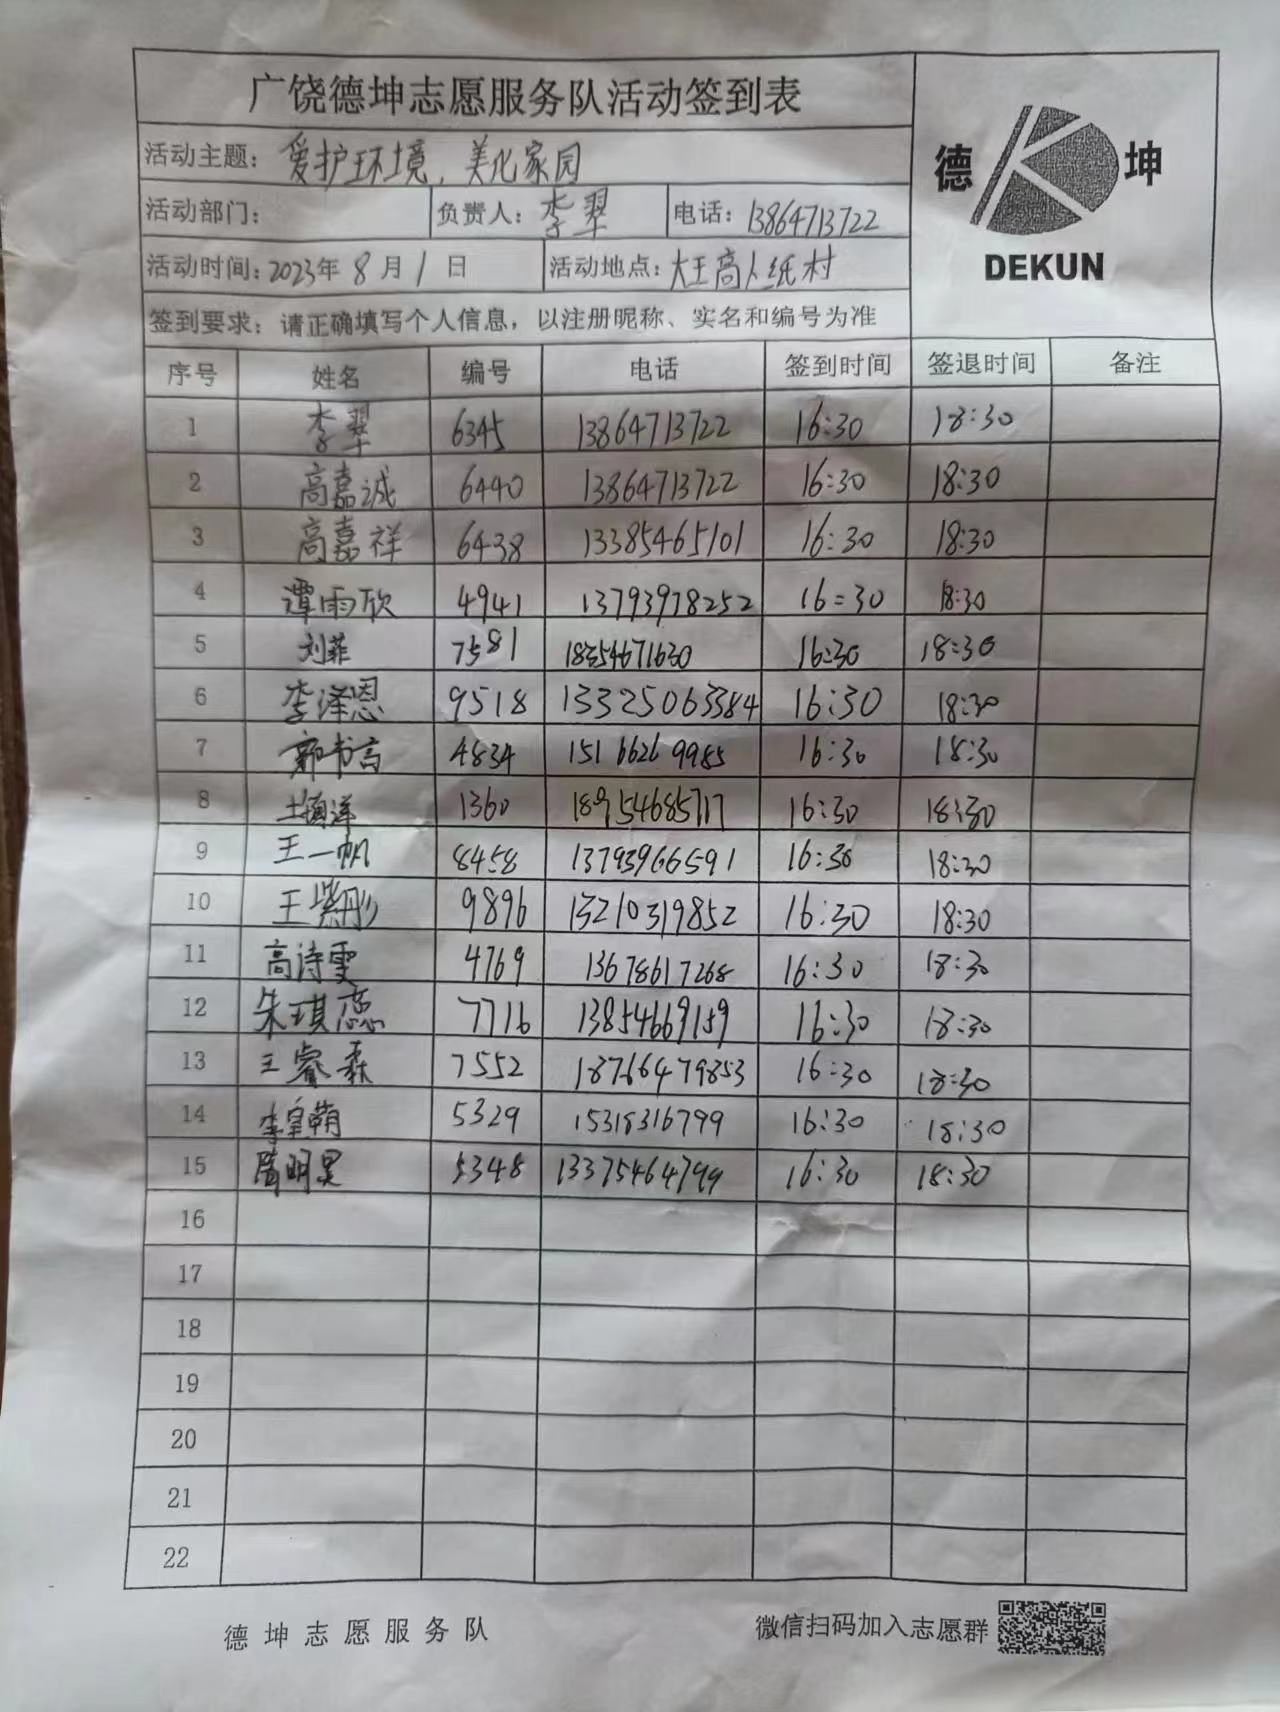 广饶德坤志愿服务队活动签到表
德 坤
DEKUN
活动主题：爱护环境，美化家园
活动部门： 负责人：李翠 电话：13864713722
活动时间：2023年 8 月 1 日 活动地点：大王高 纸村
签到要求：请正确填写个人信息，以注册昵称、实名和编号为准
序号 姓名 编号 电话 签到时间 签退时间 备注
1 李翠 6345 13864713722 16:30 18:30
2 高嘉诚 6440 13864713722 16:30 18:30
3 高嘉祥 6438 13385465101 16:30 18:30
4 谭雨欣 4941 13793978252 16:30 18:30
5 刘菲 7581 18354671630 16:30 18:30
6 李泽恩 9518 13325063384 16:30 18:30
7 郭书言 4834 15166269985 16:30 18:30
8 1360 18954685717 16:30 18:30
9 王一帆 8458 13793966591 16:30 18:30
10 王紫彤 9896 13210319852 16:30 18:30
11 高诗雯 4769 13678617268 16:30 18:30
12 朱琪蕊 7716 13854669159 16:30 18:30
13 王睿森 7552 18766479853 16:30 18:30
14 5329 15318316799 16:30 18:30
15 5348 13375464799 16:30 18:30
16
17
18
19
20
21
22
德坤志愿服务队 微信扫码加入志愿群